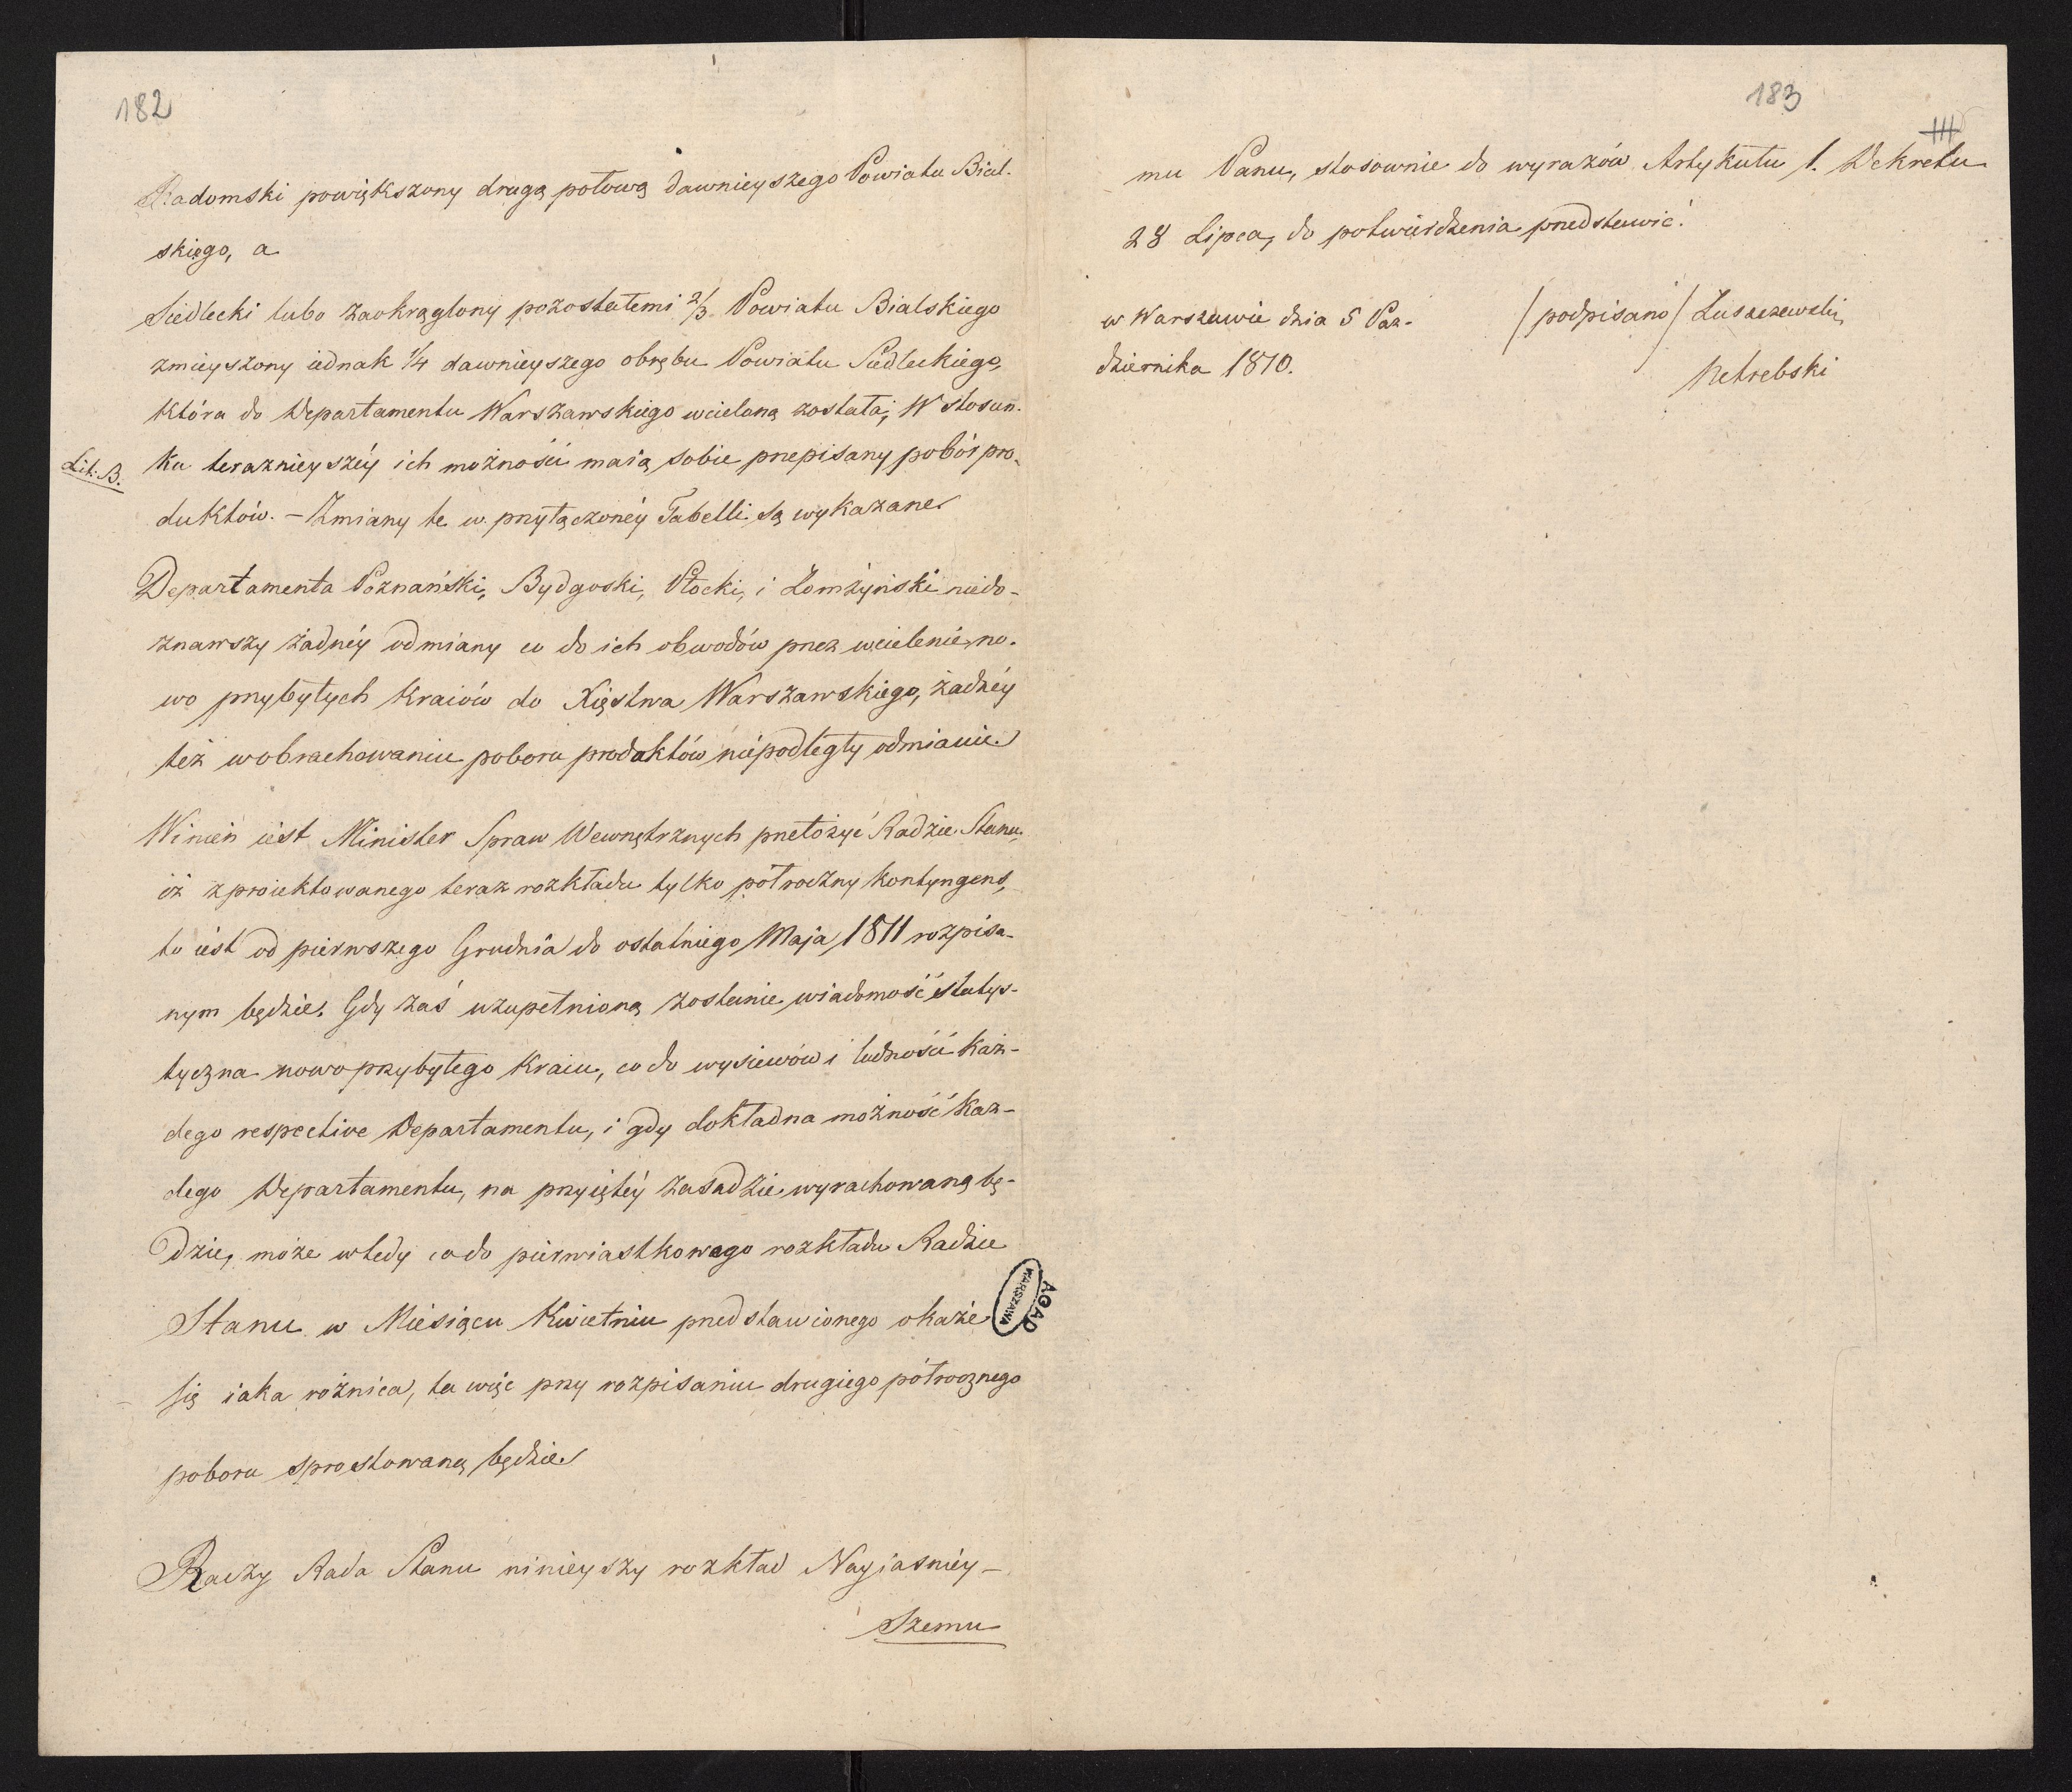 182
Radomski powiększony drugą połową dawnieyszego Powiatu Bial-
skiego, a
Siedlecki lubo zaokrąglony pozostałemi 2/3 Powiatu Bialskiego
zmieyszony iednak 1/4 dawnieyszego obrębu Powiatu Siedleckiego,
która do Departamentu Warszawskiego wcieloną została; W stosun-
Lit: B.
ku teraznieyszéy ich możności maią sobie przepisany pobór pro-
duktów. – Zmiany te w przyłączonéy Tabelli są wykazane
Departamenta Poznański, Bydgoski, Płocki, i Łomżyński niedo-
znawszy żadnéy odmiany co do ich obwodów przez wcielenie no-
wo przybyłych Kraiów do Xięstwa Warszawskiego, żadnéy
też w obrachowaniu poboru produktów niepodległy odmianie.
Winien iest Minister Spraw Wewnętrznych przełożyć Radzie Stanu,
iż zproiektowanego teraz rozkładu tylko półroczny kontyngens,
to iest od pierwszego Grudnia do ostatniego Maja 1811 rozpisa-
nym będzie. Gdy zaś uzupełnioną zostanie wiadomość statys-
tyczna nowo przybyłego Kraiu, co do wysiewów i ludności każ-
dego respective Departamentu, i gdy dokładna możność każ-
dego Departamentu, na przyiętéy zasadzie wyrachowaną bę-
dzie, może wtedy co do pierwiastkowego rozkładu Radzie
Stanu w Miesiącu Kwietniu przedstawionego okaże
się iaka różnica, ta więc przy rozpisaniu drugiego półrocznego
poboru sprostowaną będzie
Raczy Rada Stanu ninieyszy rozkład Nayiaśniéy-
szemu
AGAD
WARSZAWA
183
mu Panu, stosownie do wyrazów Artykułu 1. Dekretu
28 Lipca, do potwierdzenia przedstawić.
w Warszawie dnia 5 Paz-
dziernika 1810.
/podpisano/ Łuszczewski
Netrebski